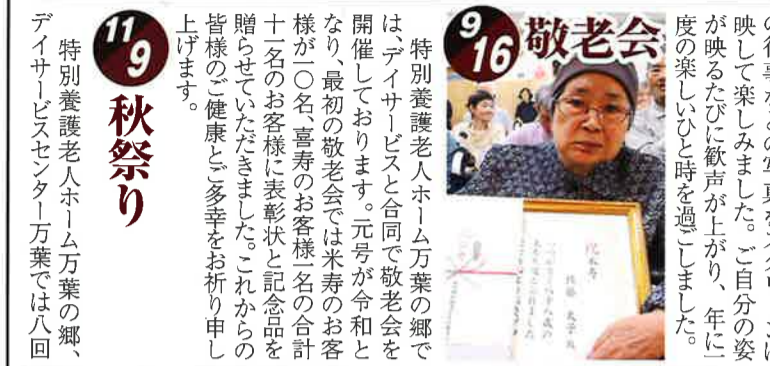 映して楽しみました。ご自分の姿
が映るたびに歓声が上がり、年に一
度の楽しいひと時を過ごしました。
9/16
敬老会
祝米寿
特別養護老人ホーム万葉の郷で
は、デイサービスと合同で敬老会を
開催しております。元号が令和と
なり、最初の敬老会では米寿のお客
様が一〇名、喜寿のお客様一名の合計
十一名のお客様に表彰状と記念品を
贈らせていただきました。これからの
皆様のご健康とご多幸をお祈り申し
上げます。
11/9
秋祭り
特別養護老人ホーム万葉の郷、
デイサービスセンター万葉では八回